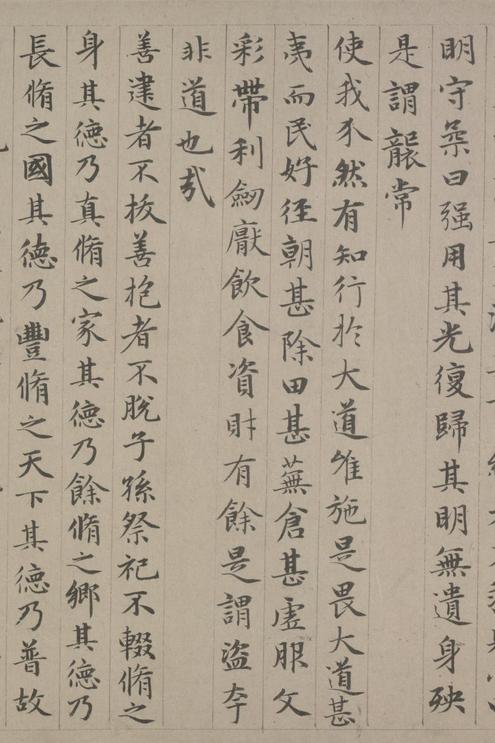 明守柔曰强用其光復歸其明無遺身殃
是謂襲常
使我介然有知行於大道唯施是畏大道甚
夷而民好徑朝甚除田甚蕪倉甚虛服文
彩帶利劒厭飲食資財有餘是謂盜夸
非道也哉
善建者不拔善抱者不脫子孫祭祀不輟脩之
身其德乃真脩之家其德乃餘脩之鄉其德乃
長脩之國其德乃豐脩之天下其德乃普故